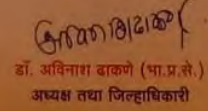 डॉ. अविनाश ढाकणे (भा.प्र.से.)
अध्यक्ष तथा जिल्हाधिकारी